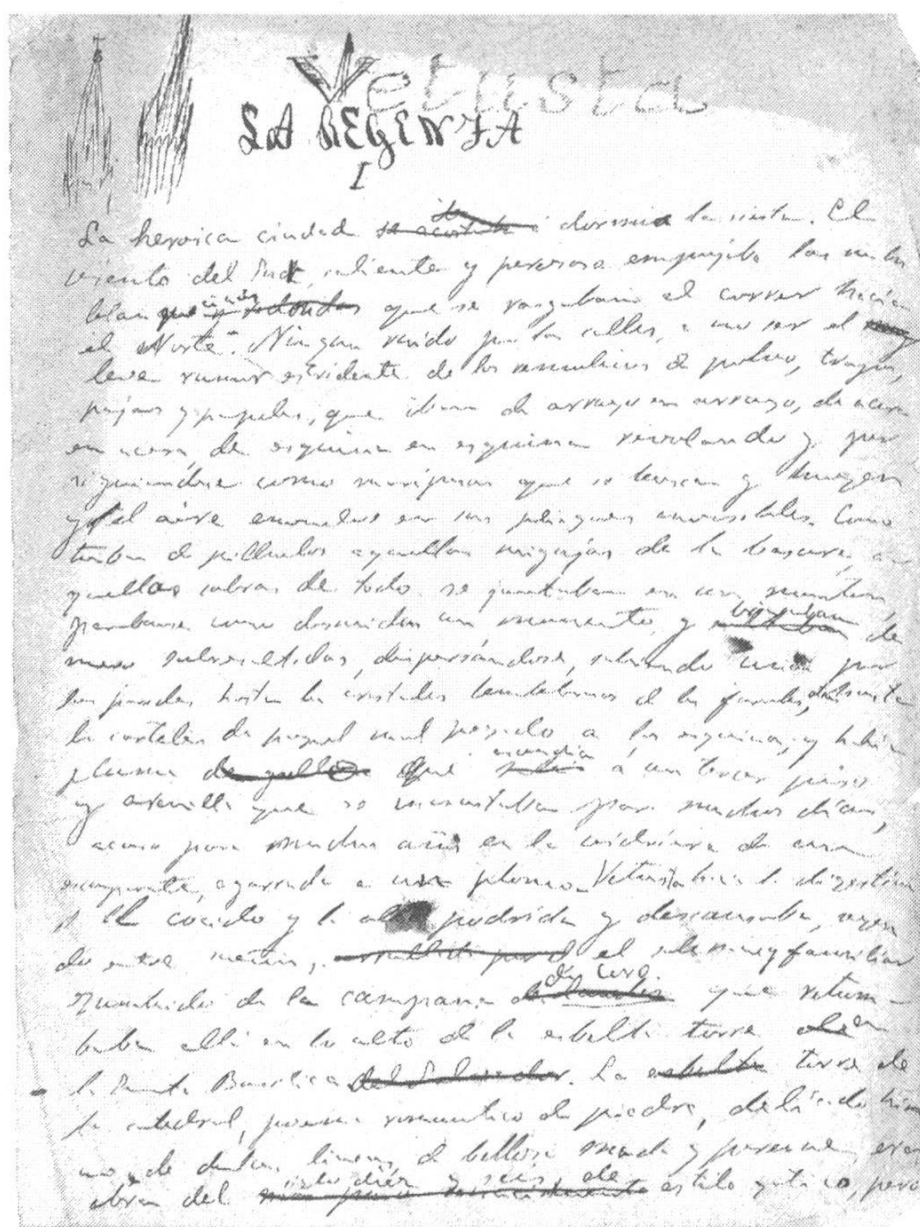 Vetusta
LA REGENTA
I
La heroica ciudad dormía la siesta. El
viento del Sur, caliente y perezoso empujaba las nubes
blanquecinas que se rasgaban al correr hacia
el Norte. Ningun ruido por las calles, a no ser el
leve rumor estridente de los remolinos de polvo, trapos,
pajas y papeles, que iban de arroyo en arroyo, de acera
en acera, de esquina en esquina revolando y per
siguiendose como mariposas que se buscan y huyen
y el aire envuelve en sus pliegues invisibles. Como
turbas de pilluelos aquellas migajas de la basura, a
quellas sobras de todo se juntaban en un monton,
parabanse como dormidas un momento, y brincaban de
nuevo sobresaltadas, dispersandose, trepando unas por
las paredes hasta los cristales temblorosos de los faroles, otras hasta
los carteles de papel mal pegado a las esquinas, y habia
pluma que á un tercer piso
y arenilla que se incrustaba para muchos dias,
acaso para muchos años en la vidriera de un
escaparate, agarrada a un plomo. Vetusta hacia la digestion
del cocido y la olla podrida y descansaba, oyen
do entre sueños, el monotono y familiar
zumbido de la campana de coro. que retum-
baba alli en lo alto de la esbelta torre en
la Santa Basilica. La torre de
la catedral, poema romantico de piedra, delicado him
no, de dulces lineas de belleza muda y perenne, era
obra del siglo diez y seis de estilo gotico, pero